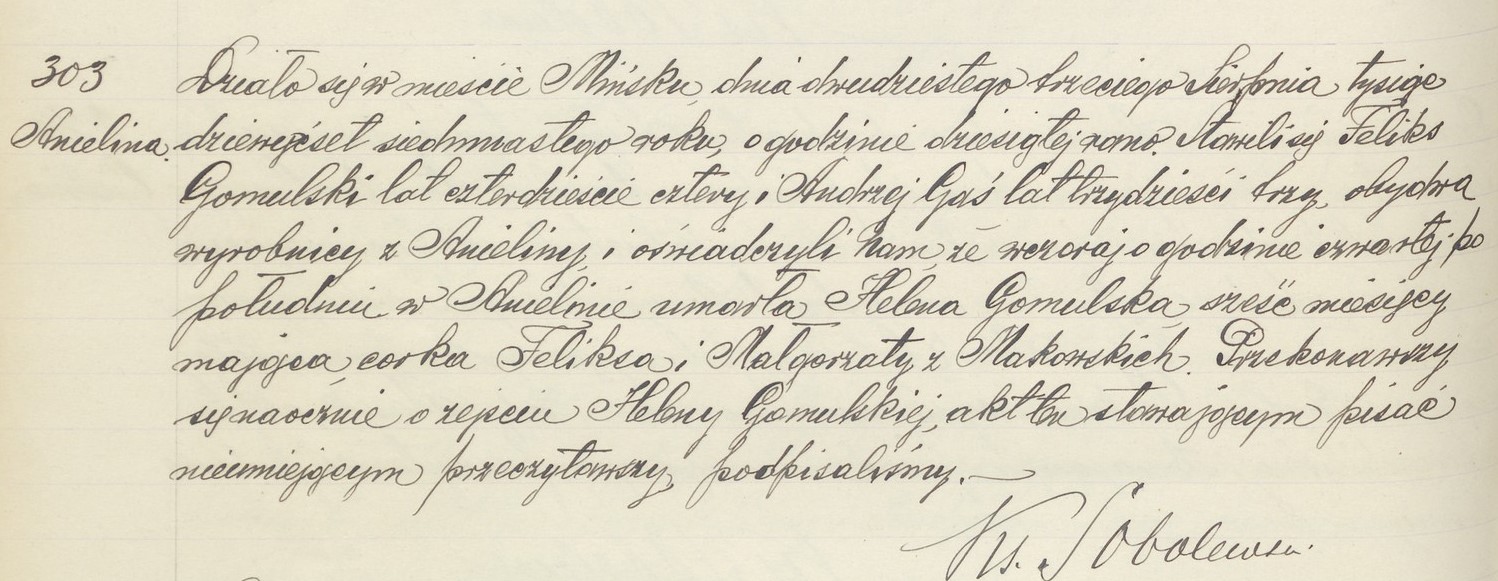 303
Anielina.
Działo się w mieście Mińsku, dnia dwudziestego trzeciego Sierpnia tysiąc
dziewięćset siedmnastego roku, o godzinie dziesiątej rano. Stawili się Feliks
Gomulski lat czterdzieście cztery i Andrzej Gaś lat trzydzieści trzy, obydwa
wyrobnicy z Anieliny, i oświadczyli nam, że wczoraj o godzinie czwartej po
południu w Anielinie umarła Helena Gomulska, sześć miesięcy
mająca, corka Feliksa i Małgorzaty z Makowskich. Przekonawszy
się naocznie o zejściu Heleny Gomulskiej, akt ten stawającym pisać
nieumiejącym przeczytawszy, podpisaliśmy. —
Ks. Sobolewski